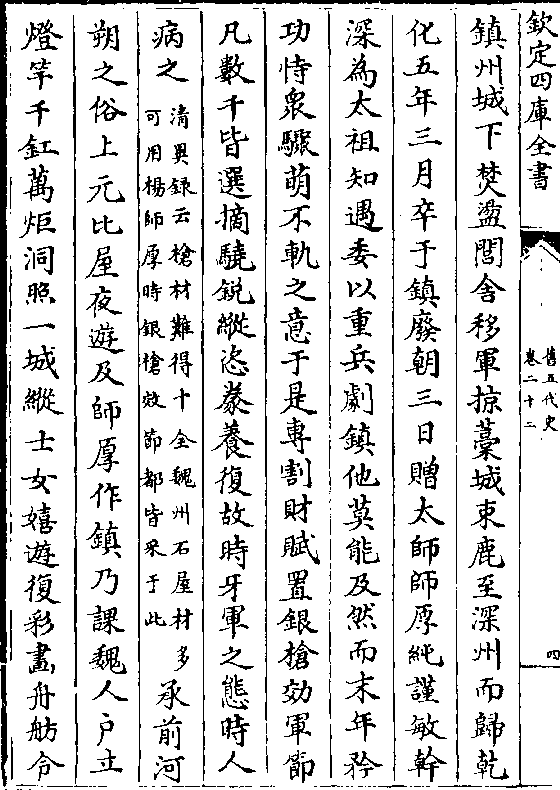 欽定四庫全書
舊五代史
卷二十二
四
鎮州城下焚盪閭舍移軍掠藁城束鹿至深州而歸乾
化五年三月卒于鎮廢朝三日贈太師師厚純謹敏幹
深為太祖知遇委以重兵劇鎮他莫能及然而末年矜
功恃衆驟萌不軌之意于是專割財賦置銀槍効軍節
凡數千皆選摘驍鋭縱恣豢養復故時牙軍之態時人
病之
清異録云槍材難得十全魏州石屋材多
可用楊師厚時銀槍效節都皆采于此
承前河
朔之俗上元比屋夜遊及師厚作鎮乃課魏人户立
燈竿千釭萬炬洞照一城縱士女嬉遊復彩畫舟舫令